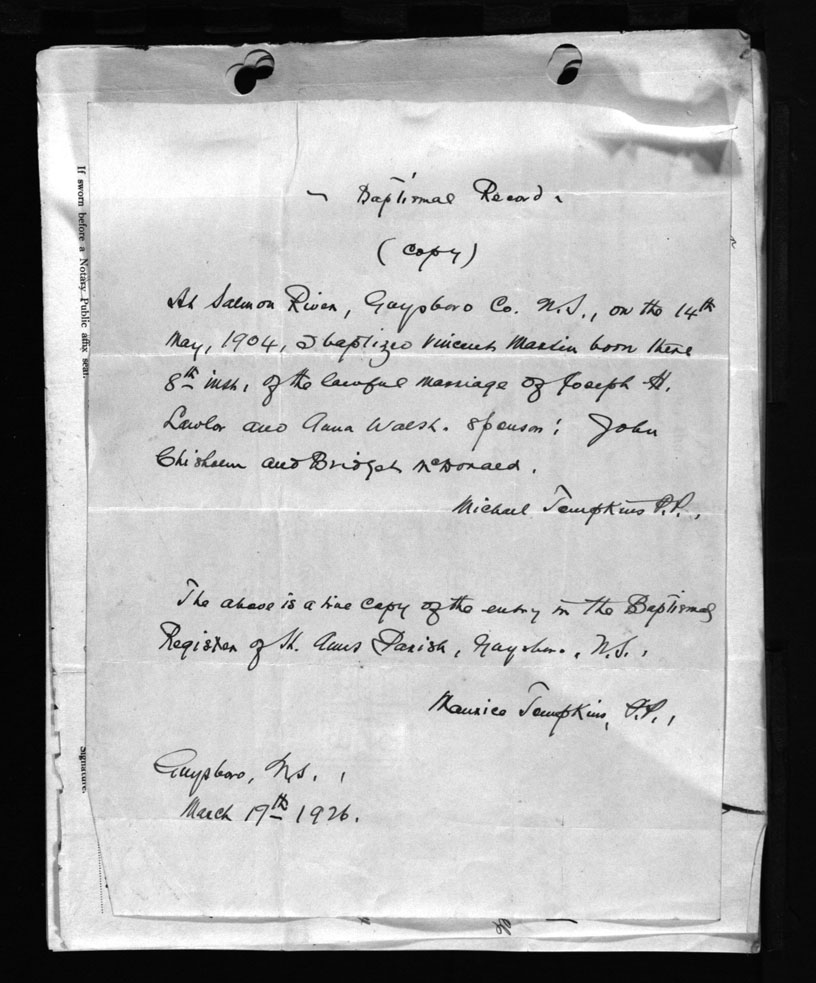 ~ Baptismal Record ~
(copy)
At Salmon River, Guysboro Co. N.S., on the 14th
May, 1904, I baptized Vincent Martin born there
8th inst, of the lawful marriage of Joseph H.
Lawlor and Anna Walsh. Sponsors: John
Chisholm and Bridget McDonald.
Michael Tompkins P.P.,
The above is a true copy of the entry in the Baptismal
Register of St. Anns Parish, Guysboro, N.S.,
Maurice Tompkins, P.P.,
Guysboro, N.S.,
March 17th 1926.
If sworn before a Notary Public affix seal.
Signature.